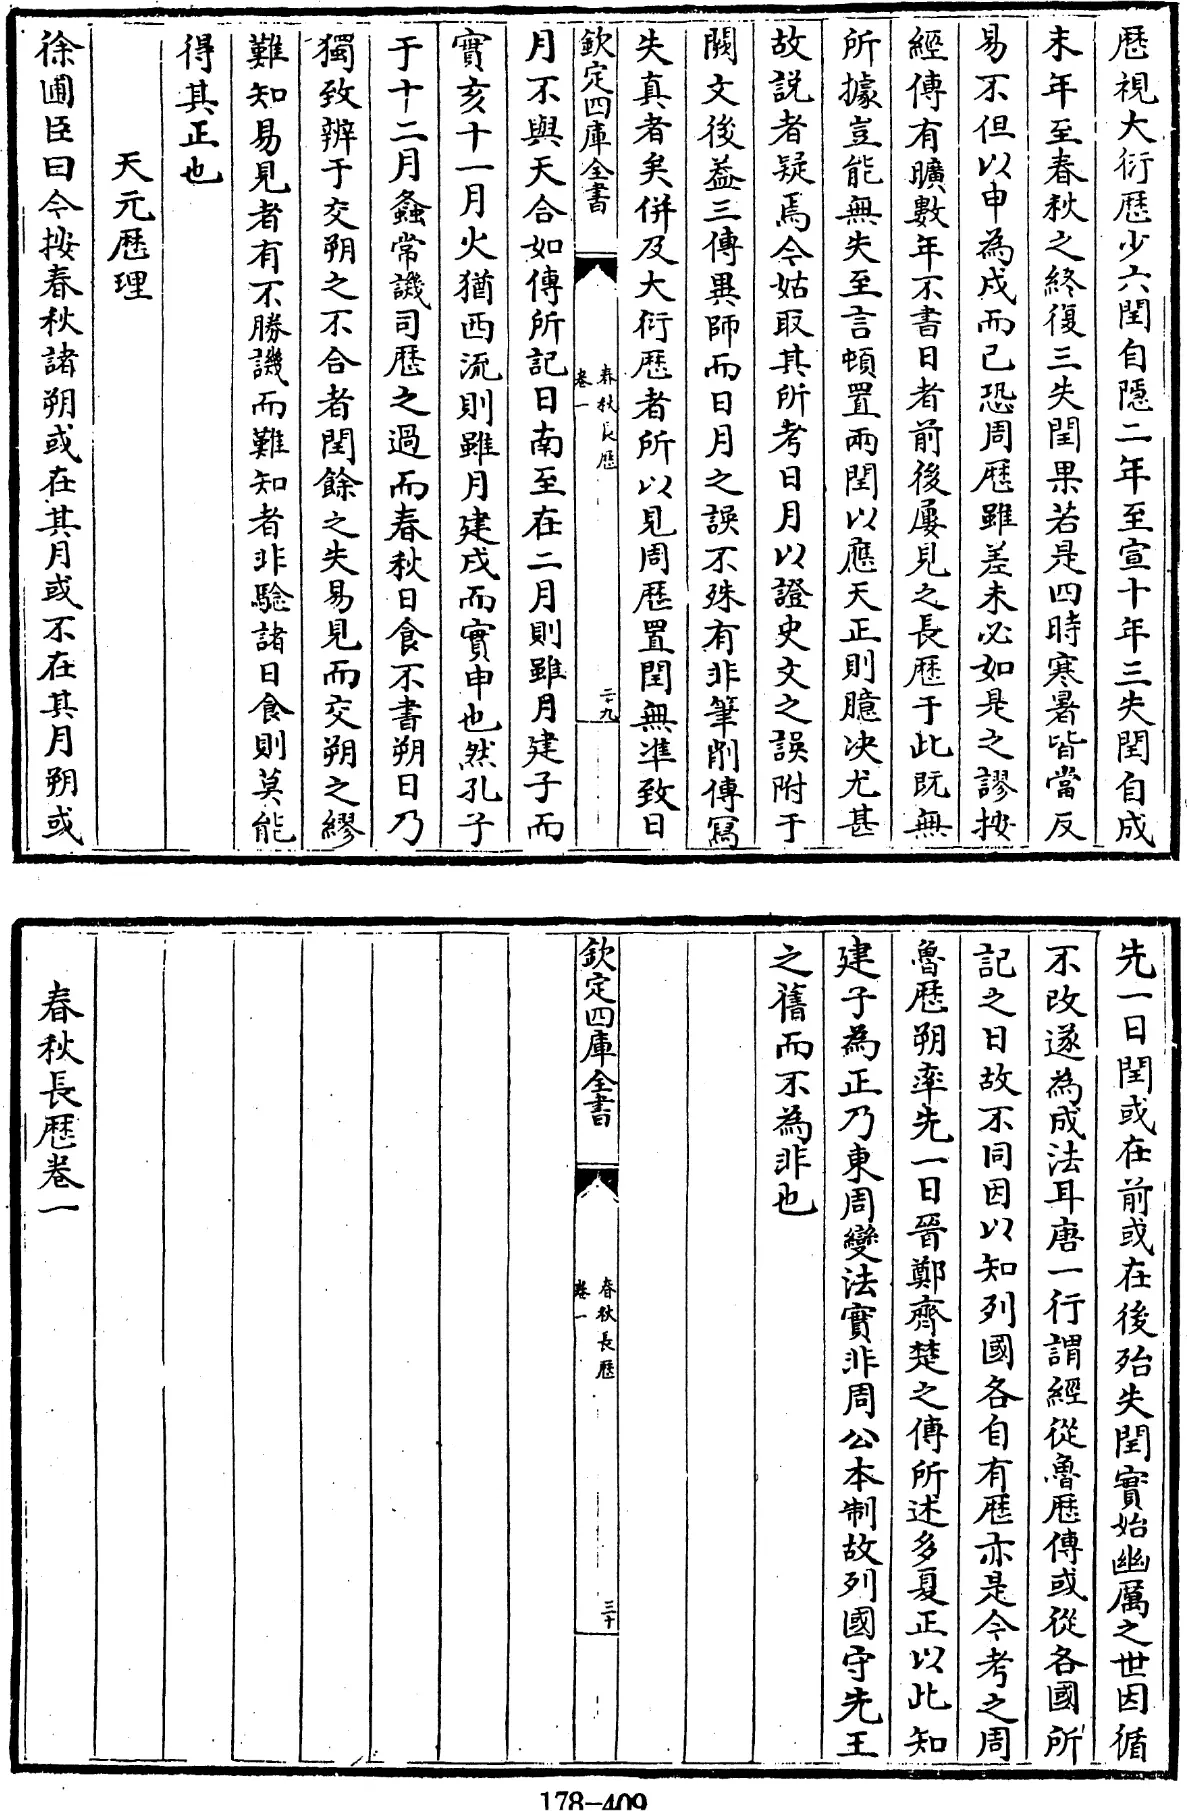 歴視大衍歴少六閏自隠二年至宣十年三失閏自成
末年至春秋之終復三失閏果若是四時寒暑皆當反
易不但以申為戌而已恐周歴雖差未必如是之謬按
經傳有曠數年不書日者前後屢見之長歴于此既無
所據豈能無失至言頓置兩閏以應天正則臆决尤甚
故説者疑焉今姑取其所考日月以證史文之誤附于
闕文後葢三傳異師而日月之誤不殊有非筆削傳寫
失真者矣併及大衍歴者所以見周歴置閏無準致日
欽定四庫全書
春秋長歴
卷一
二十九
月不與天合如傳所記日南至在二月則雖月建子而
實亥十一月火猶西流則雖月建戌而實申也然孔子
于十二月螽常譏司歴之過而春秋日食不書朔日乃
獨致辨于交朔之不合者閏餘之失易見而交朔之繆
難知易見者有不勝譏而難知者非驗諸日食則莫能
得其正也
天元歴理
徐圃臣曰今按春秋諸朔或在其月或不在其月朔或
先一日閏或在前或在後殆失閏實始幽厲之世因循
不改遂為成法耳唐一行謂經從魯歴傳或從各國所
記之日故不同因以知列國各自有歴亦是今考之周
魯歴朔率先一日晉鄭齊楚之傳所述多夏正以此知
建子為正乃東周變法實非周公本制故列國守先王
之舊而不為非也
欽定四庫全書
春秋長歴
卷一
三十
春秋長歴卷一
178-409